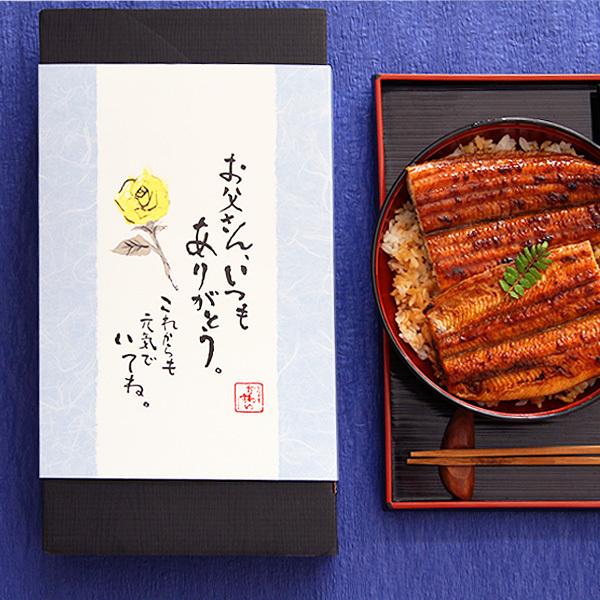 お父さん、いつも
ありがとう。
これからも
元気で
いてね。